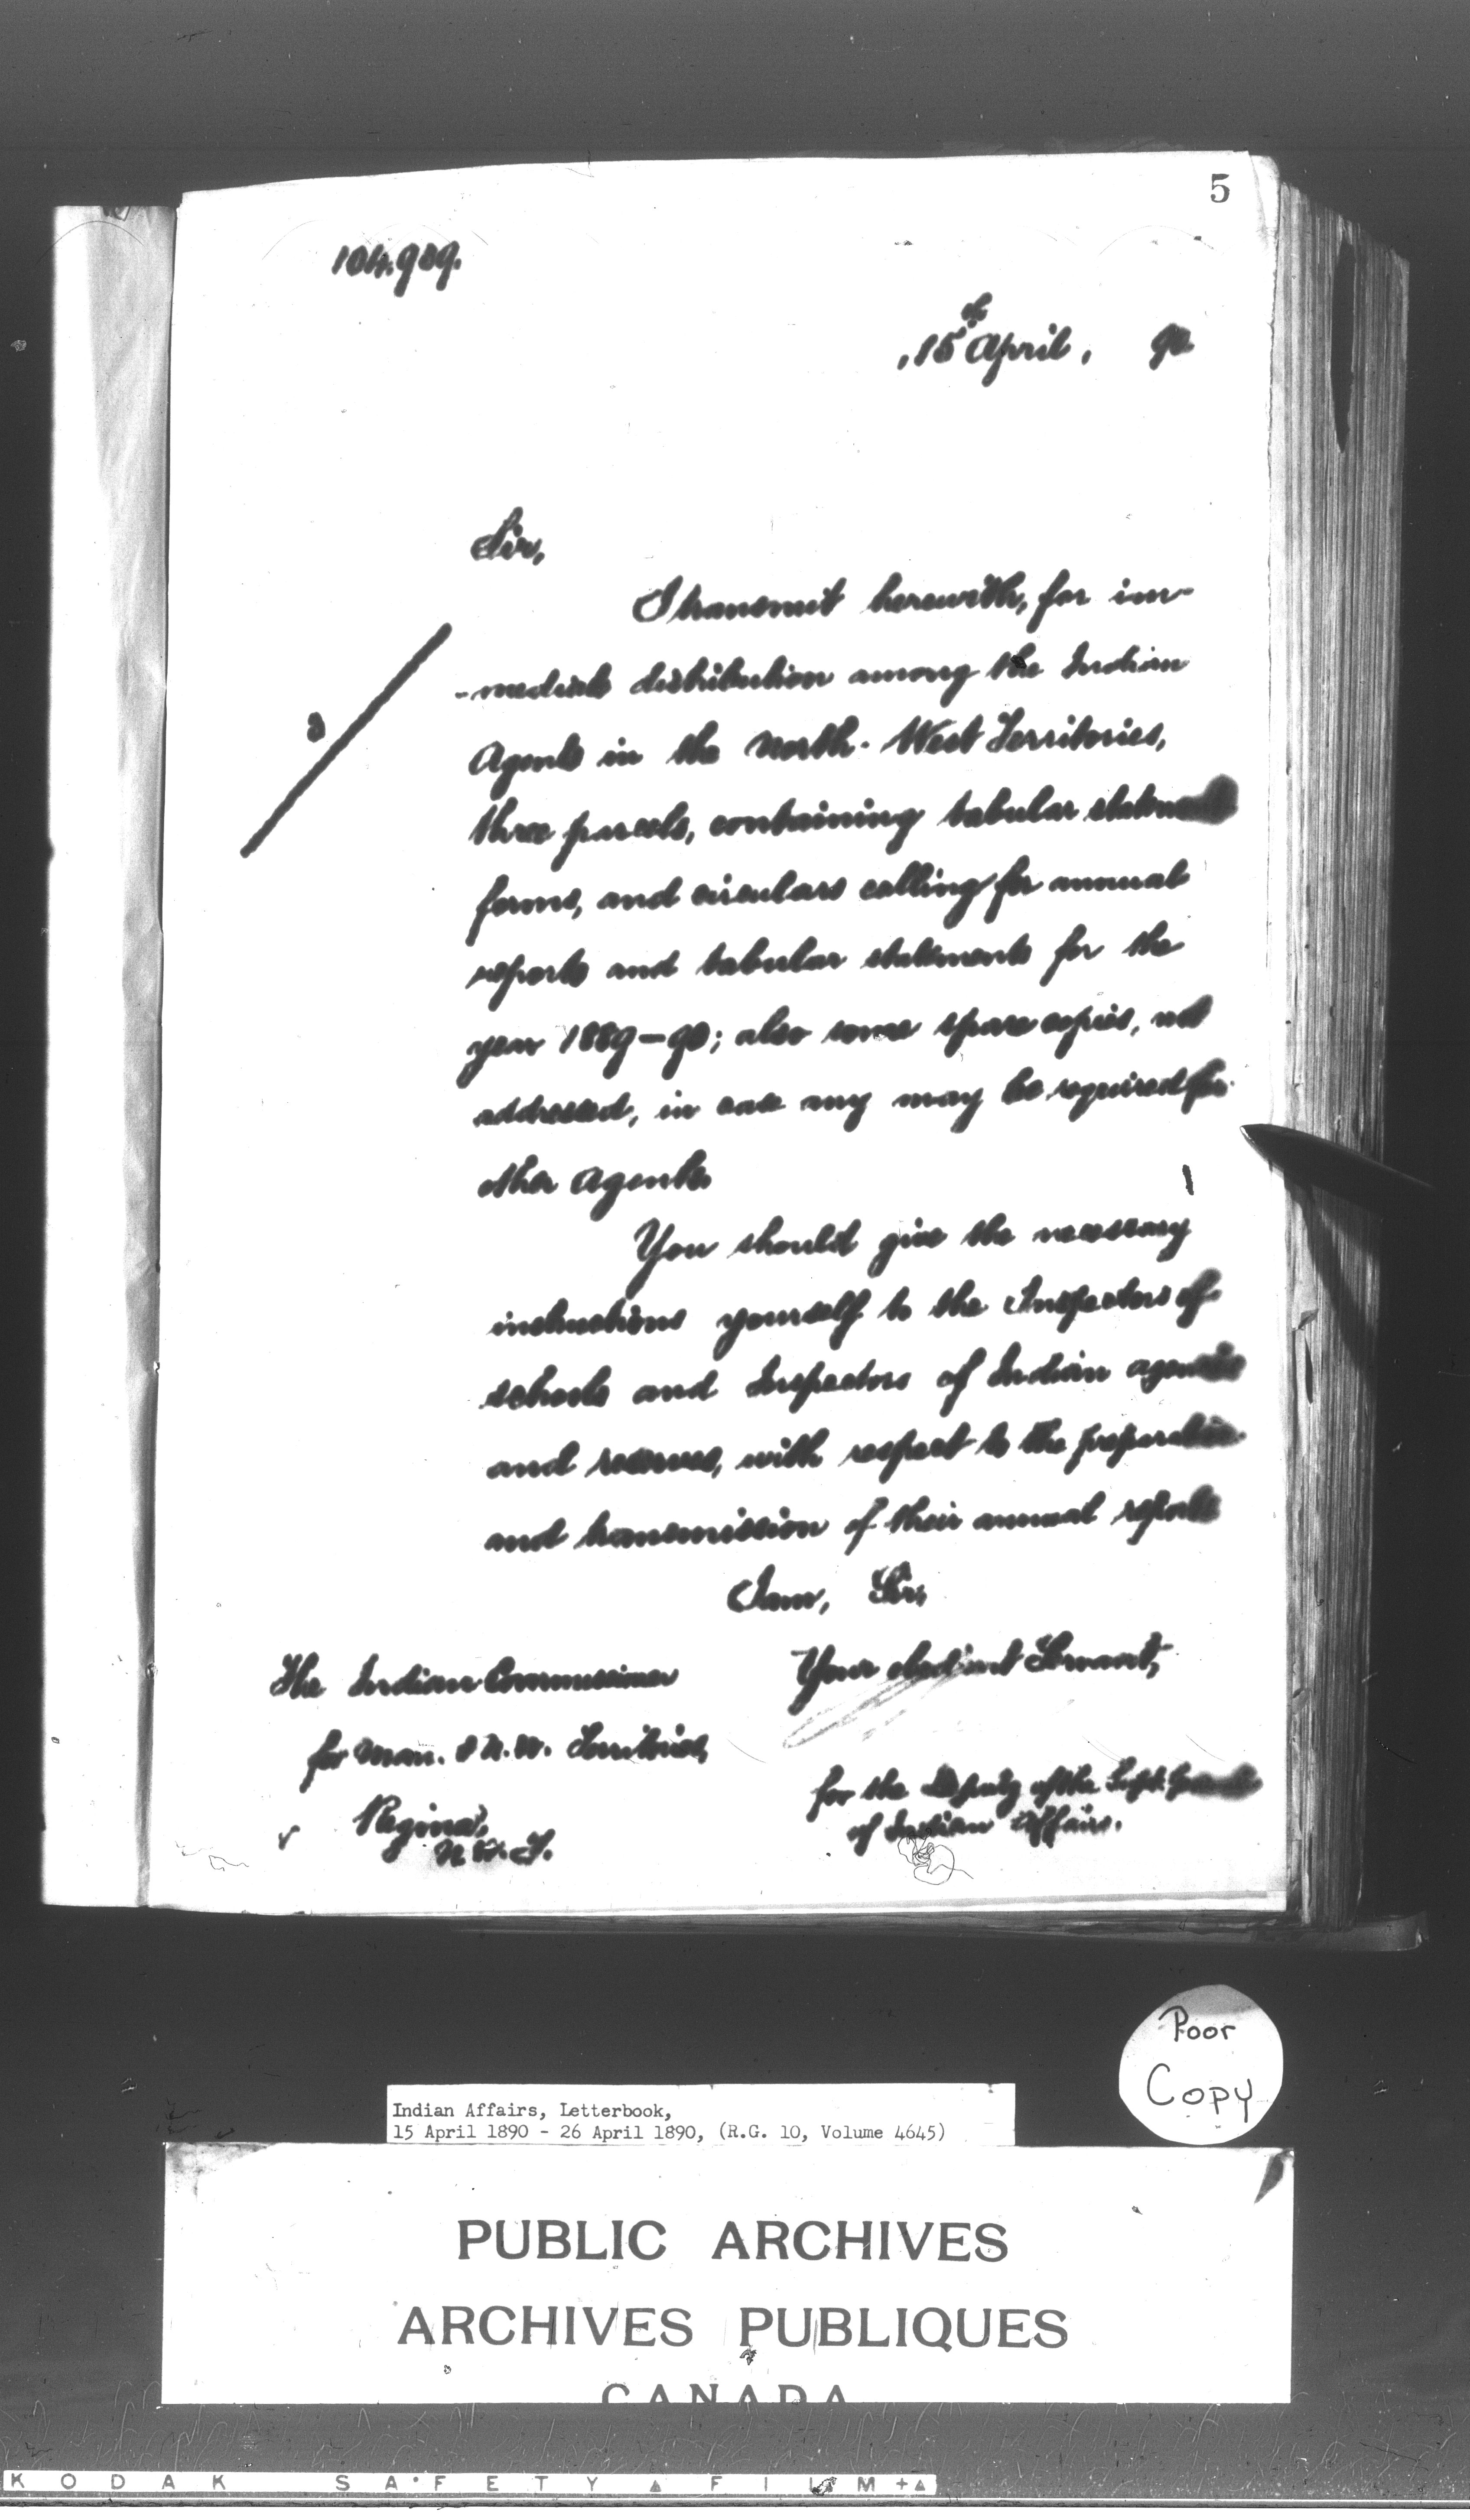 5
104.989.
, 15th April, 90
Sir,
I transmit herewith, for im-
-mediate distribution among the Indian
Agents in the North-West Territories,
three parcels, containing tabular statement
forms, and circulars calling for annual
reports and tabular statements for the
year 1889-90; also some spare copies, not
addressed, in case any may be required for
other Agents.
You should give the necessary
instructions yourself to the Inspectors of
schools and Inspectors of Indian agencies
and reserves, with respect to the preparation
and transmission of their annual reports
I am, Sir,
Your obedient Servant,
The Indian Commissioner
for Man. & N.W. Territories,
for the Deputy of the Supt. General
of Indian Affairs.
Regina,
N.W.T.
Poor
Copy
Indian Affairs, Letterbook,
15 April 1890 - 26 April 1890, (R.G. 10, Volume 4645)
PUBLIC ARCHIVES
ARCHIVES PUBLIQUES
CANADA
KODAK SAFETY FILM